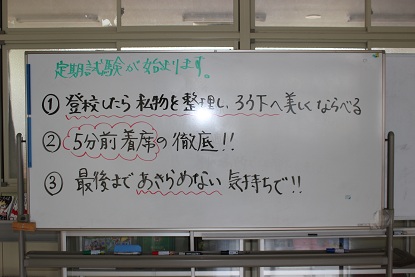 定期試験が始まります。
① 登校したら私物を整理し、ろう下へ美しくならべる
② 5分前着席の徹底!!
③ 最後まであきらめない気持ちで!!